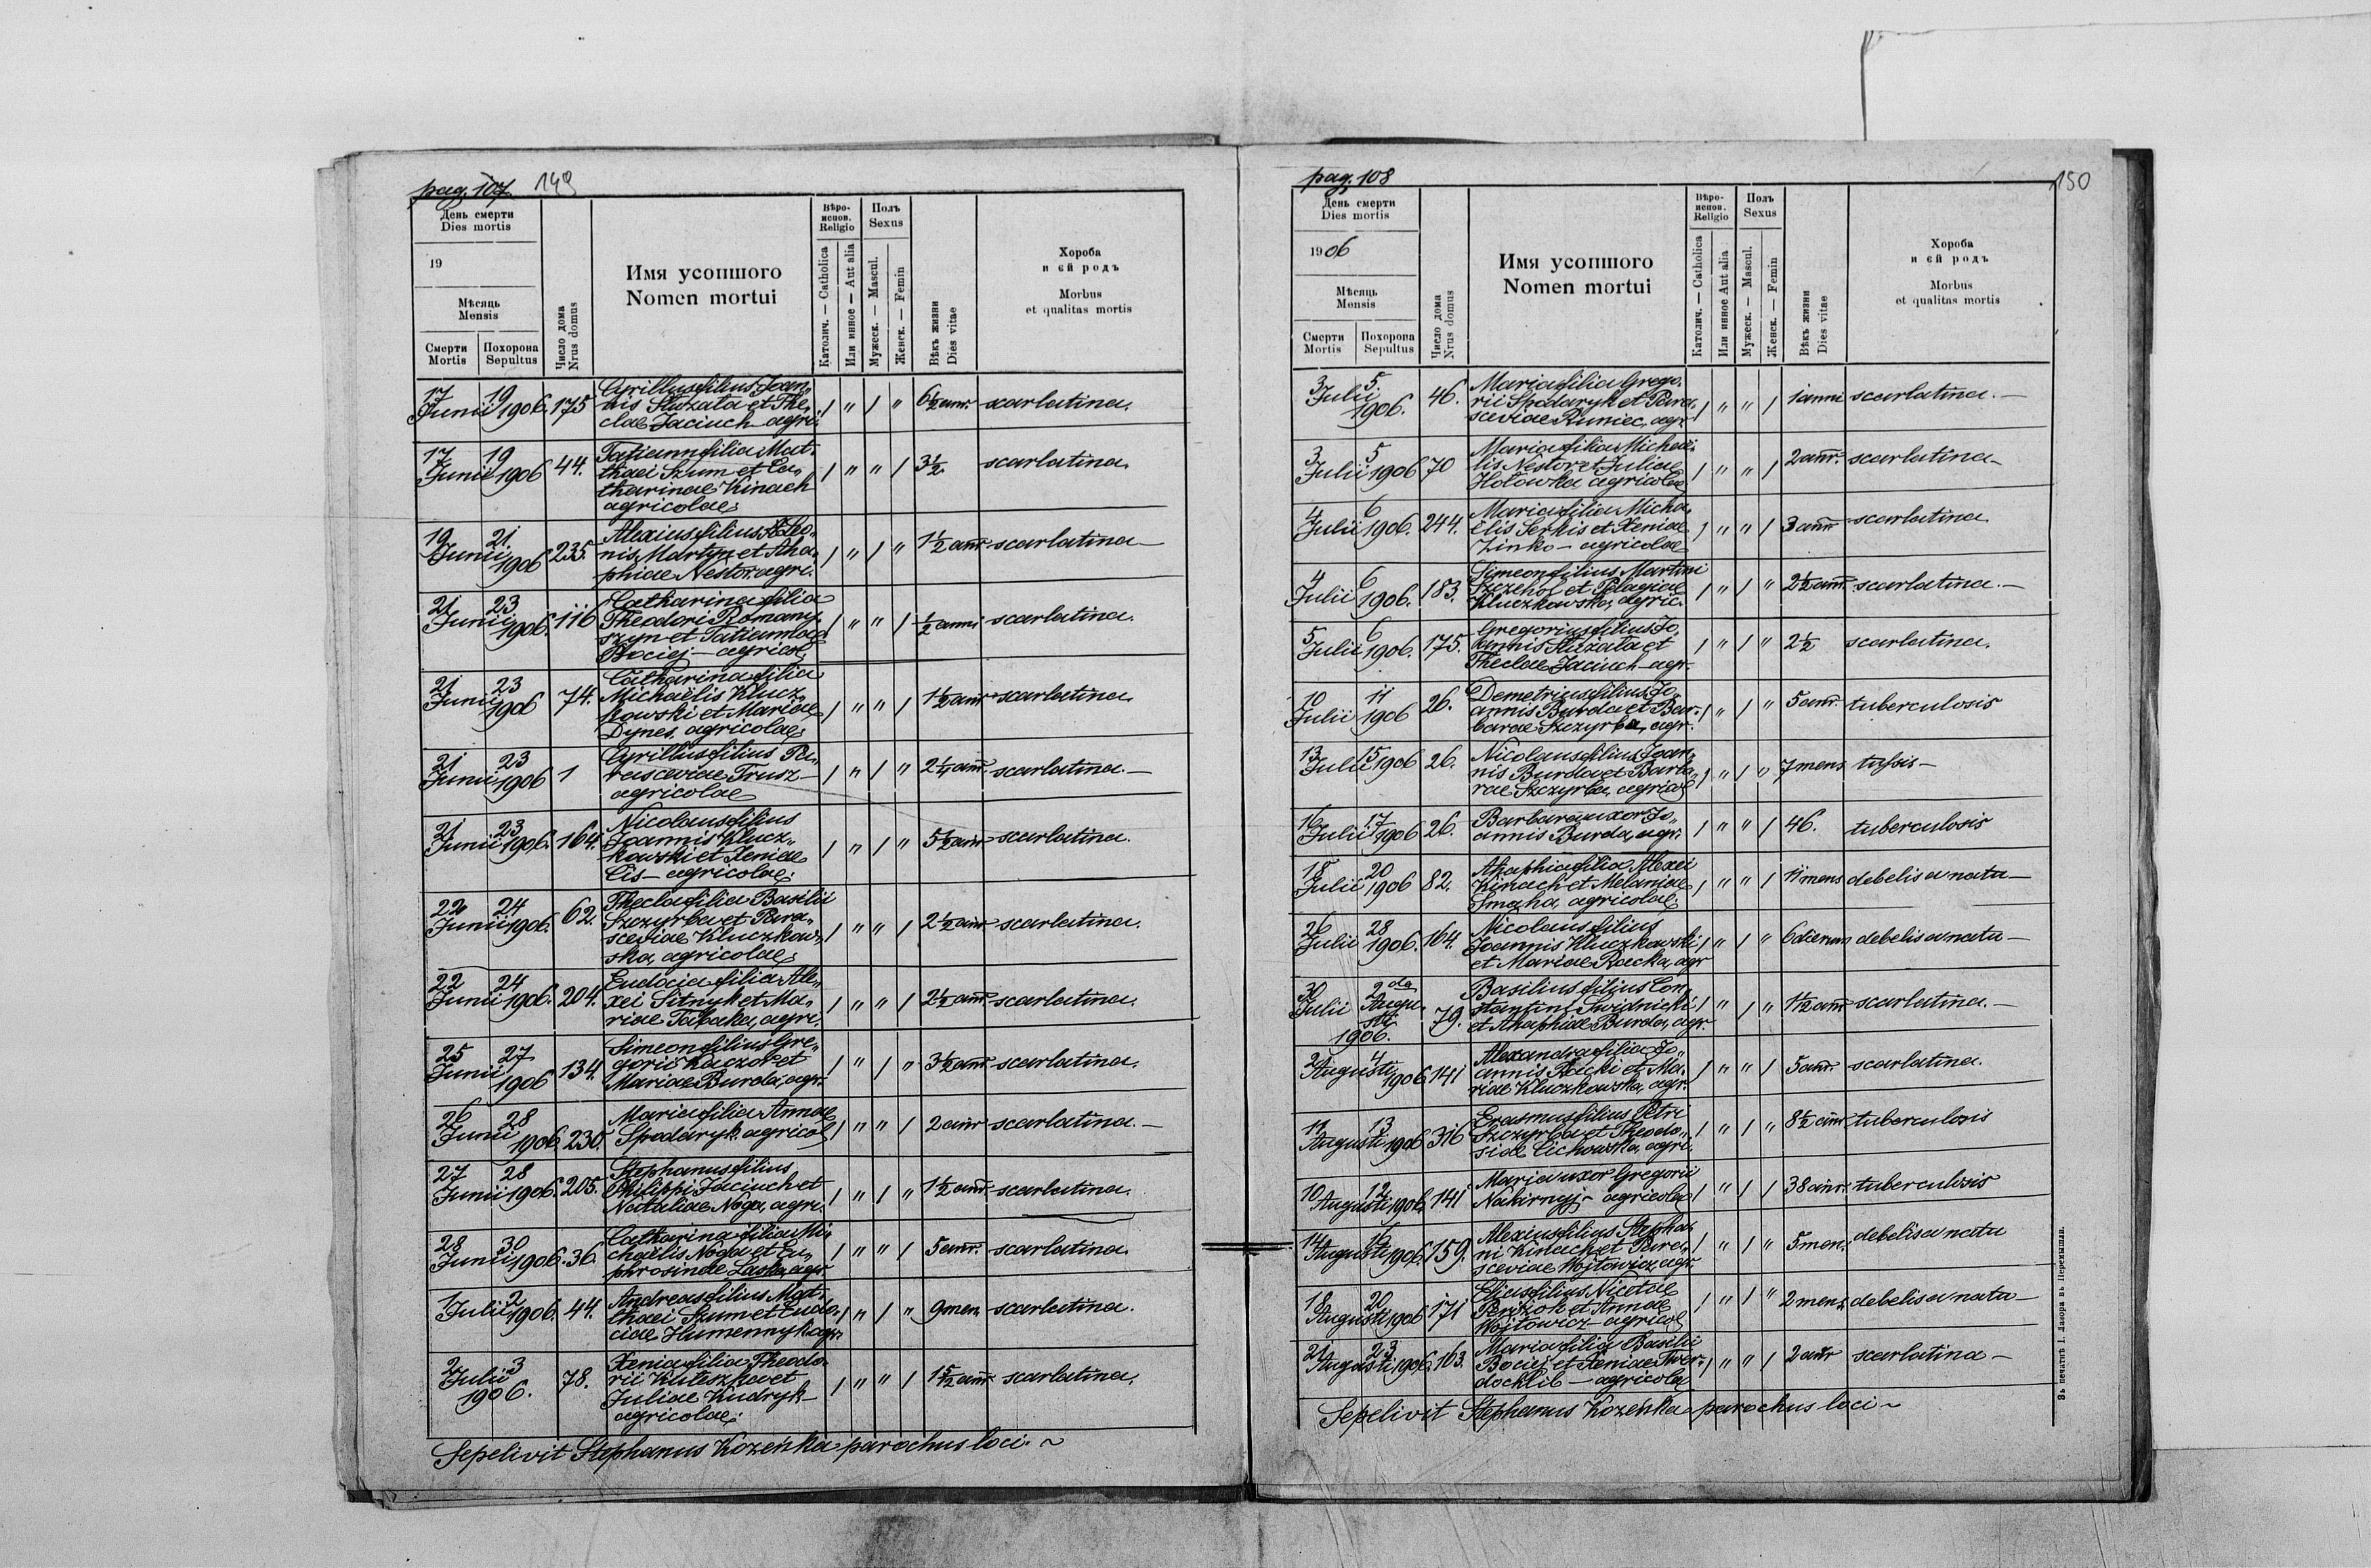 pag. 107. 149
День смерти
Dies mortis
19
Мѣсяць
Mensis
Смерти
Mortis
Похорона
Sepultus
Число дома
Nrus domus
Имя усопшого
Nomen mortui
Вѣро-
испов.
Religio
Католич. — Catholica
Или инное — Aut alia
Полъ
Sexus
Мужеск. — Mascul.
Женск. — Femin
Вѣкъ жизни
Dies vitae
Хороба
и єй родъ
Morbus
et qualitas mortis
17 19
Junii 1906. 175
Cyrillus filius Joan„
nis Służata et The„
clae Jaciuch agri.
/ " / " 6½ annr. scarlatina.
17 19
Junii 1906 44.
Tatianna filia Mat„
thaei Szum et Ca„
tharinae Kinach
agricolae.
/ " " / 3½. scarlatina.
19 21.
Junii 1906 235.
Alexius filius Leo„
nis Martyn et Aha„
phiae Nestor. agri.
/ " / " 1½ annr scarlatina —
21 23
Junii 1906. 116
Catharina filia
Theodori Romany„
szyn et Tatiannae
Bociej — agricol.
/ " " / ½ anni scarlatina.
21 23
Junii 1906 74.
Catharina filia
Michaelis Klucz„
kowski et Mariae
Dynes, agricolae.
/ " " / 1½ annr scarlatina.
21 23
Junii 1906 1
Cyrillus filius Pa„
rasceviae Trusz —
agricolae
/ " / " 2¼ annr. scarlatina. —
21 23
Junii 1906. 164.
Nicolaus filius
Joannis Klucz„
kowski et Xeniae
Cis — agricolae.
/ " / " 5½ annr scarlatina.
22 24
Junii 1906. 62.
Thecla filia Basilii
Szczyrba et Para„
sceviae Kluczkow„
ska, agricolae.
/ " " / 2½ annr scarlatina.
22 24
Junii 1906. 204.
Eudocia filia Ale„
xei Sitnyk et Ma„
riae Tabaka, agri.
/ " " / 2½ annr. scarlatina.
25 27
Junii 1906 134.
Simeon filius Gre„
gorii Kaczor et
Mariae Burda, agr.
/ " / " 3½ annr scarlatina.
26 28
Junii 1906 230.
Maria filia Annae
Spodaryk. agricol
/ " " / 2 annr scarlatina. —
27 28
Junii 1906. 205.
Stephanus filius
Philippi Jaciuch et
Nataliae Noga, agri.
/ " / " 1½ annr. scarlatina.
28 30
Junii 1906. 36.
Catharina filia Mi„
chaelis Noga et Eu„
phrosinae Laska, agr.
/ " " / 5 annr. scarlatina.
1 2
Julii 1906. 44.
Andreas filius Mat„
thaei Szum et Eudo„
ciae Humennyk agr.
/ " / " 9 men. scarlatina.
2 3
Julii 1906. 78.
Xenia filia Theodo„
rii et
Juliae Kudryk —
agricolae.
/ " " / annr scarlatina.
Sepelivit Stephanus Kozeńka parochus loci. ~
pag. 108 150
День смерти
Dies mortis
1906
Мѣсяць
Mensis
Смерти
Mortis
Похорона
Sepultus
Число дома
Nrus domus
Имя усопшого
Nomen mortui
Вѣро-
испов.
Religio
Католич. — Catholica
Или инное Aut alia
Полъ
Sexus
Мужеск. — Mascul.
Женск. — Femin
Вѣкъ жизни
Dies vitae
Хороба
и єй родъ
Morbus
et qualitas mortis
3 5.
Julii 1906. 46.
Maria filia Grego„
rii Spodaryk et Para„
sceviae Runiec, agr.
/ " " / 1 anni scarlatina. —
3 5
Julii 1906 70
Maria filia Michae„
lis Nestor et Juliae
Holowka agricolae
/ " " / 2 annr. scarlatina —
4 6
Julii 1906. 244.
Maria filia Micha„
elis Serkis et Xeniae
Zinko — agricolae
/ " " / 3 annr scarlatina.
4 6
Julii 1906. 183.
Simeon filius Martini
et Pelagiae
Kluczkowska, agric.
/ " / " 2½ annr. scarlatina. —
5 6
Julii 1906. 175.
Gregorius filius Jo„
annis Służata et
Theclae Jaciuch agr.
/ " / " 2½ scarlatina.
10 11
Julii 1906 26.
Demetrius filius Jo„
annis Burda et Bar„
barae Szczyrba, agr.
/ " / " 5 annr. tuberculosis
13 15
Julii 1906 26.
Nicolaus filius Joan„
nis Burda et Barba„
rae Szczyrba, agricol
/ " / " 7 mens. tussis —
16 17
Julii 1906 26.
Barbara uxor Jo„
annis Burda, agr.
/ " " / 46. tuberculosis
18 20
Julii 1906 82.
Ahaphia filia Alexei
Kinach et Melaniae
Smaha, agricolae.
/ " " / 11 mens debelis a natu —
26 28
Julii 1906. 164.
Nicolaus filius
Joannis Kluczkowski
et Mariae Racka, agr
/ " / " 6 dierum debelis a natu —
30 2da
Julii Augu„
sti
1906. 79.
Basilius filius Con„
stantini Swidnicki
et Ahaphiae Burda, agr.
/ " / " 1½ annr scarlatina. —
2 4
Augusti 1906 141
Alexandra filia Jo„
annis Racki et Ma„
riae Kluczkowska, agr.
/ " " / 5 annr. scarlatina.
11 13
Augusti 1906 316
Erasmus filius Petri
Szczyrba et Theodo„
siae Cichowska, agri.
/ " / " 8½ annr tuberculosis
10 12
Augusti 1906 141
Maria uxor Gregorii
Nakirnyj — agricolae
/ " / / 38 annr. tuberculosis
14 16
Augusti 1906. 159.
Alexius filius Stepha„
ni Kinach et Para„
sceviae Wojtowicz, agr.
/ " / " 5 men. debelis a natu
18 20
Augusti 1906 171
Elias filius Nicetae
et Annae
Wojtowicz — agricol
/ " / " 2 mens debelis a natu —
21 23
Augusti 1906 163.
Maria filia Basilii
Bociej et Xeniae Twer„
dochlib — agricola
/ " " / 2 annr scarlatina —
Sepelivit Stephanus Kozeńka parochus loci ~
Зъ печатнѣ І. Лазора въ Перемышли.